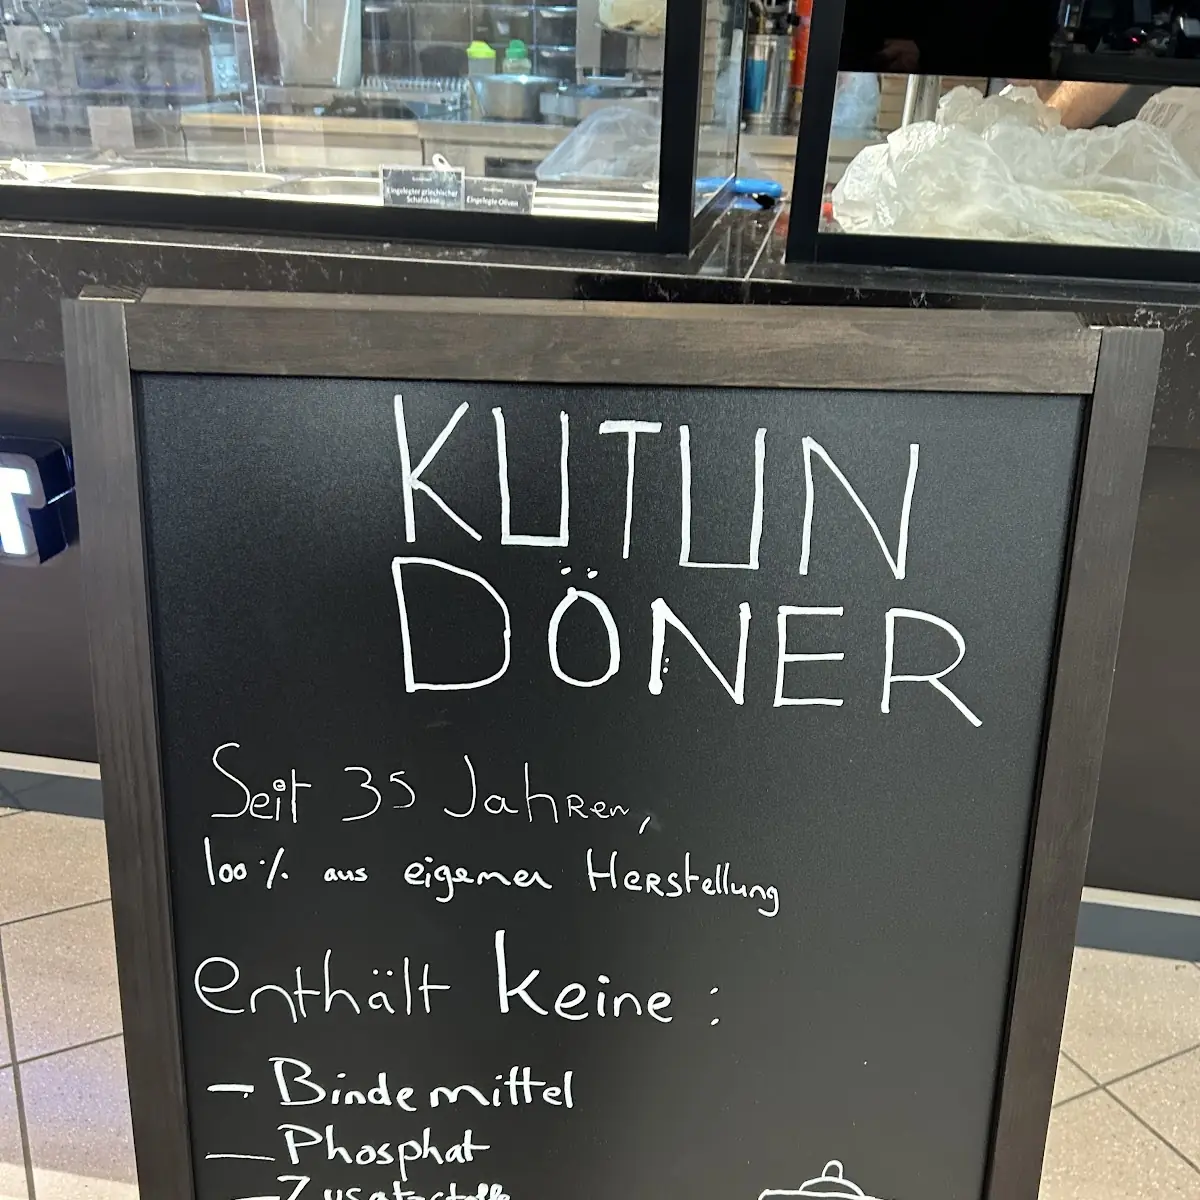 Eingelegter griechischer
Schafskäse
Eingelegte Oliven
T
KUTUN
DÖNER
Seit 35 Jahren,
100% aus eigener Herstellung
enthält keine:
- Bindemittel
- Phosphat
- Zusatzstoffe